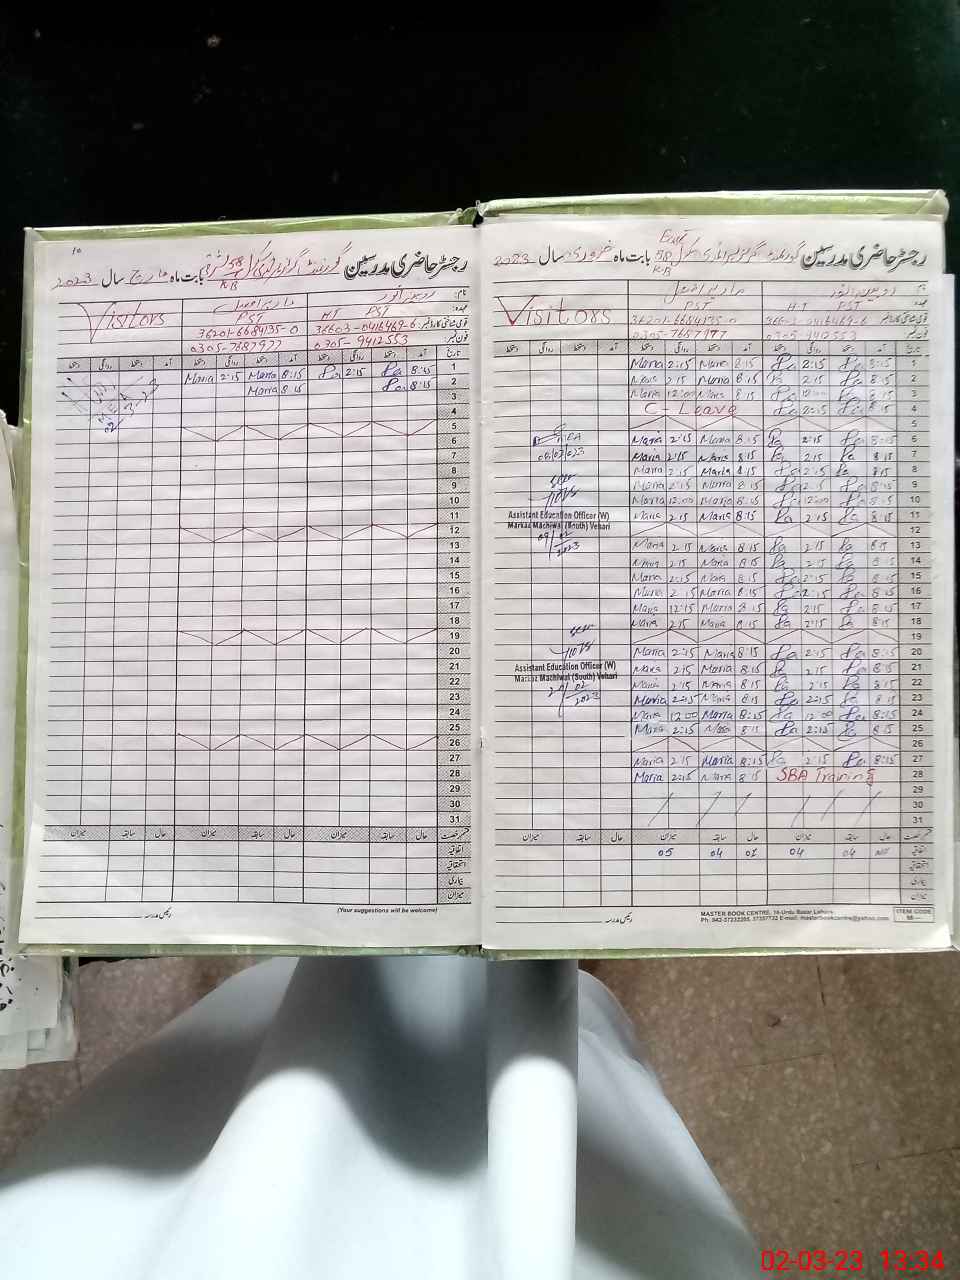 رجسٹر حاضری مدرسین
بابت ماہ مارچ سال 2023
Visitors
PST
HT PST
36201-6684135-0
36603-0416469-6
0305-7687977
0305-9412553
تاریخ
Maria 2:15 Maria 8:15 2:15 8:15 1
Maria 8:15 8:15 2
3
4
5
6
7
8
9
10
11
12
13
14
15
16
17
18
19
20
21
22
23
24
25
26
27
28
29
30
31
میزان سابقہ حال میزان سابقہ حال میزان سابقہ حال
اتفاقیہ
استحقاقیہ
بیماری
میزان
رئیس مدرسہ
(Your suggestions will be welcome)
رجسٹر حاضری مدرسین
East
58
KB
بابت ماہ فروری سال 2023
Visitors
PST
HT PST
36201-6684135-0
36603-0416469-6
0305-7687977
0305-9412553
تاریخ
Maria 2:15 Maria 8:15 2:15 8:15 1
Maria 2:15 Maria 8:15 2:15 8:15 2
Maria 12:00 Maria 8:15 12:00 8:15 3
C-Leave 2:15 8:15 4
5
Maria 2:15 Maria 8:15 2:15 8:15 6
Maria 2:15 Maria 8:15 2:15 8:15 7
Maria 2:15 Maria 8:15 2:15 8:15 8
Maria 2:15 Maria 8:15 2:15 8:15 9
Maria 12:00 Maria 8:15 12:00 8:15 10
Maria 2:15 Maria 8:15 2:15 8:15 11
Assistant Education Officer (W)
Markaz Machiwal (South) Vehari
09/02/2023
12
Maria 2:15 Maria 8:15 2:15 8:15 13
Maria 2:15 Maria 8:15 2:15 8:15 14
Maria 2:15 Maria 8:15 2:15 8:15 15
Maria 2:15 Maria 8:15 2:15 8:15 16
Maria 12:15 Maria 8:15 2:15 8:15 17
Maria 2:15 Maria 8:15 2:15 8:15 18
19
Maria 2:15 Maria 8:15 2:15 8:15 20
Maria 2:15 Maria 8:15 2:15 8:15 21
Assistant Education Officer (W)
Markaz Machiwal (South) Vehari
Maria 2:15 Maria 8:15 2:15 8:15 22
Maria 2:15 Maria 8:15 2:15 8:15 23
Maria 12:00 Maria 8:15 12:00 8:15 24
Maria 2:15 Maria 8:15 2:15 8:15 25
26
Maria 2:15 Maria 8:15 2:15 8:15 27
Maria 2:15 Maria 8:15 SBA Training 28
29
30
31
میزان سابقہ حال میزان سابقہ حال میزان سابقہ حال
05 04 01 04 04 اتفاقیہ
استحقاقیہ
بیماری
میزان
رئیس مدرسہ
MASTER BOOK CENTRE, 16-Urdu Bazar Lahore.
Ph: 042-37232205, 37357732 E-mail: masterbookcentre@yahoo.com
ITEM CODE
02-03-23 13:34